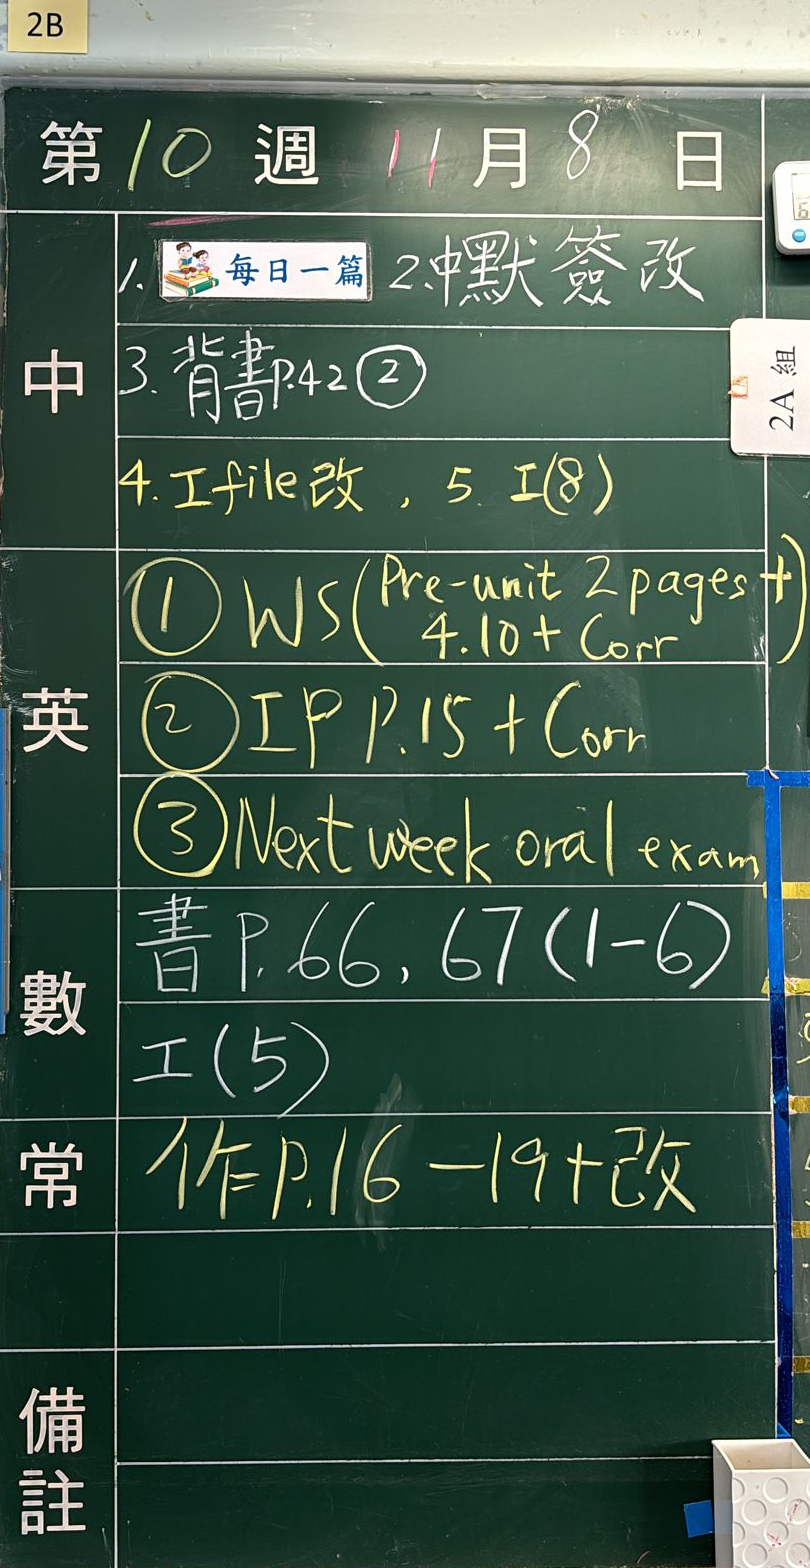 2B
第10週 11月8日
中
1. 每日一篇 2.中默簽改
3. 背書P.42②
4. 工file改, 5. 工(8)
2A 組
英
① WS(Pre-unit 2 pages +
4.10 + Corr)
② IP P.15 + Corr
③ Next week oral exam
數
書 P. 66, 67 (1-6)
工(5)
常
作P.16-19+改
備註